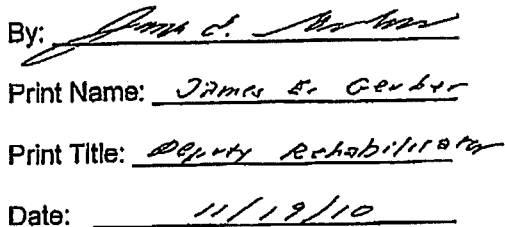 By: James E. Gerber
Print Name: James E. Gerber
Print Title: Deputy Rehabilitator
Date: 11/19/10